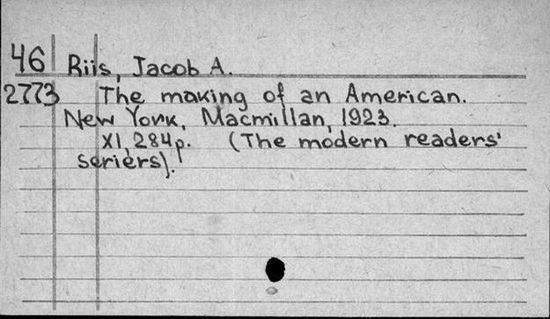 46 Riis, Jacob A.
2773 The making of an American.
New York, Macmillan, 1923.
XI, 284p. (The modern readers'
seriers).